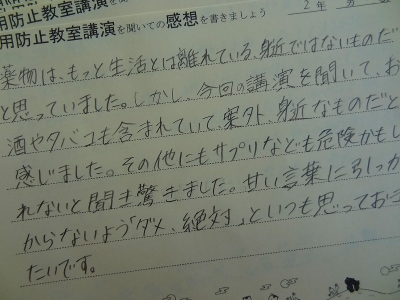 用防止教室講演を聞いての感想を書きましょう
2年 男
薬物は、もっと生活とは離れている、身近ではないものだ
と思っていました。しかし、今回の講演を聞いて、お
酒やタバコも含まれていて、案外、身近なものだと
感じました。その他にもサプリなども危険かもし
れないと聞き驚きました。甘い言葉に引っか
からないよう「ダメ、絶対」といつも思っておき
たいです。